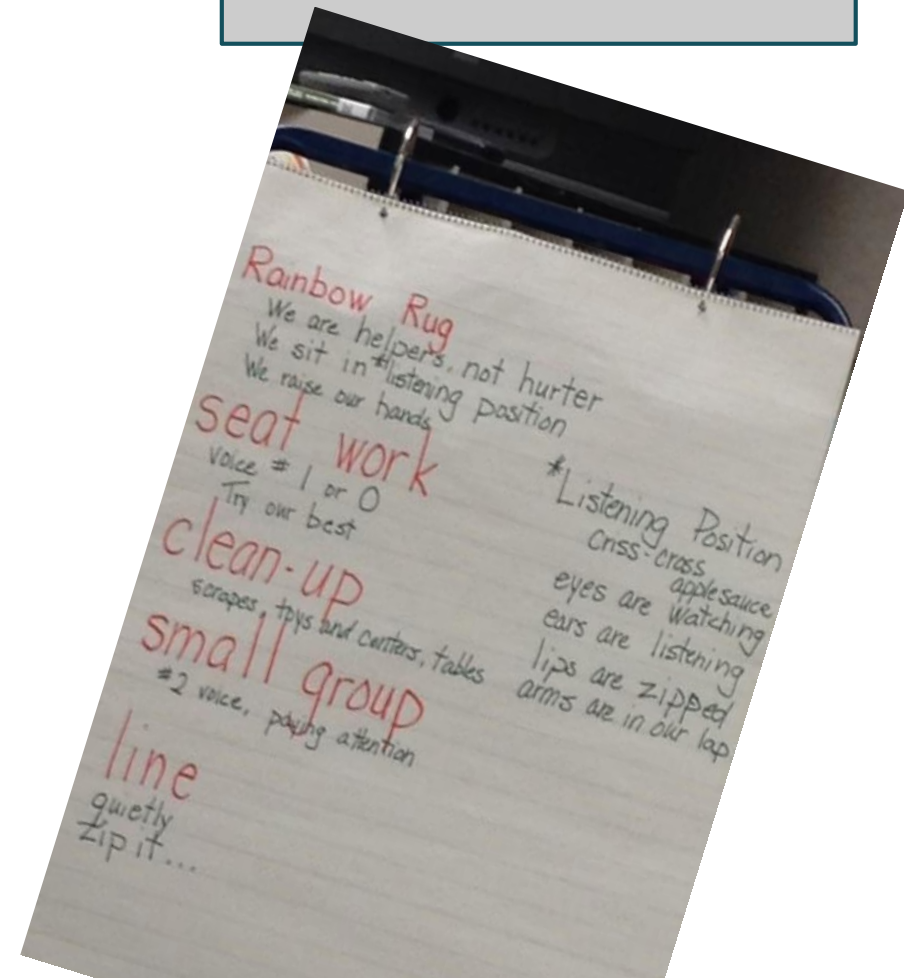 Rainbow Rug
We are helpers, not hurter
We sit in *listening position
We raise our hands
seat work
voice # 1 or 0
Try our best
clean-up
scrapes, toys and centers, tables
small group
#2 voice, paying attention
line
quietly
Zip it...
*Listening Position
criss-cross
applesauce
eyes are watching
ears are listening
lips are zipped
arms are in our lap